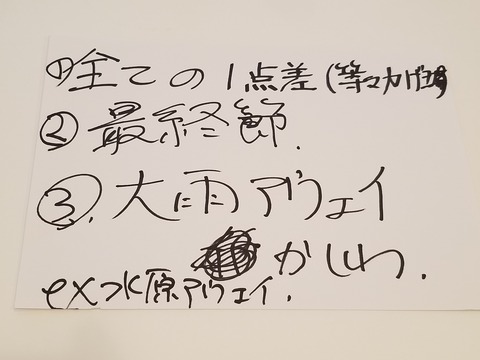 ①全ての1点差(等々力
②最終節.
③.大雨アウェイ
かしわ.
ex水原アウェイ.